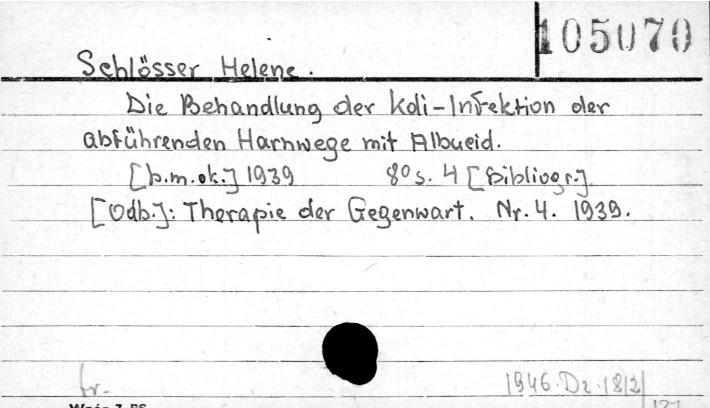 105070
Schlösser Helene.
Die Behandlung der Koli-Infektion der
abführenden Harnwege mit Albucid.
[b.m.ok.] 1939 8° s. 4 [Bibliogr.]
[Odb.]: Therapie der Gegenwart. Nr. 4. 1939.
fr.
1946. Dz. 1812/
121